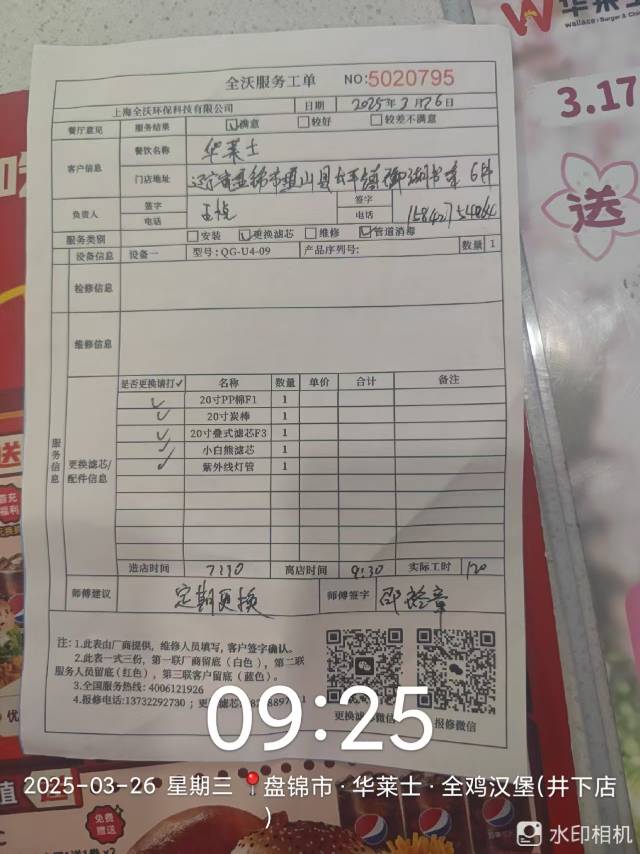 华莱士
wallace | Burger &
全沃服务工单 NO:5020795
上海全沃环保科技有限公司 日期 2025年3月26日
餐厅意见 服务结果 ☑满意 □较好 □较差不满意
客户信息 餐饮名称 华莱士
门店地址 辽宁省盘锦市盘山县太平镇
负责人 签字 签字
电话 电话
服务类别 □安装 ☑更换滤芯 □维修 ☑管道消毒
设备信息 设备一 型号:QG-U4-09 产品序列号: 数量 1
检修信息
维修信息
服务信息
更换滤芯/配件信息
是否更换请打✓ 名称 数量 单价 合计 备注
✓ 20寸PP棉F1 1
✓ 20寸炭棒 1
✓ 20寸叠式滤芯F3 1
✓ 小白熊滤芯 1
✓ 紫外线灯管 1
进店时间 7:30 离店时间 9:30 实际工时 120
师傅建议 定期更换 师傅签字
注:1.此表由厂商提供,维修人员填写,客户签字确认。
2.此表一式三份,第一联厂商留底(白色),第二联
服务人员留底(红色),第三联客户留底(蓝色)。
3.全国服务热线:4006121926
4.报修电话:13732292730 ;更
更换滤芯微信 报修微信
3.17
送
09:25
2025-03-26 星期三 盘锦市·华莱士·全鸡汉堡(井下店
)
水印相机
免费
赠送
pepsi